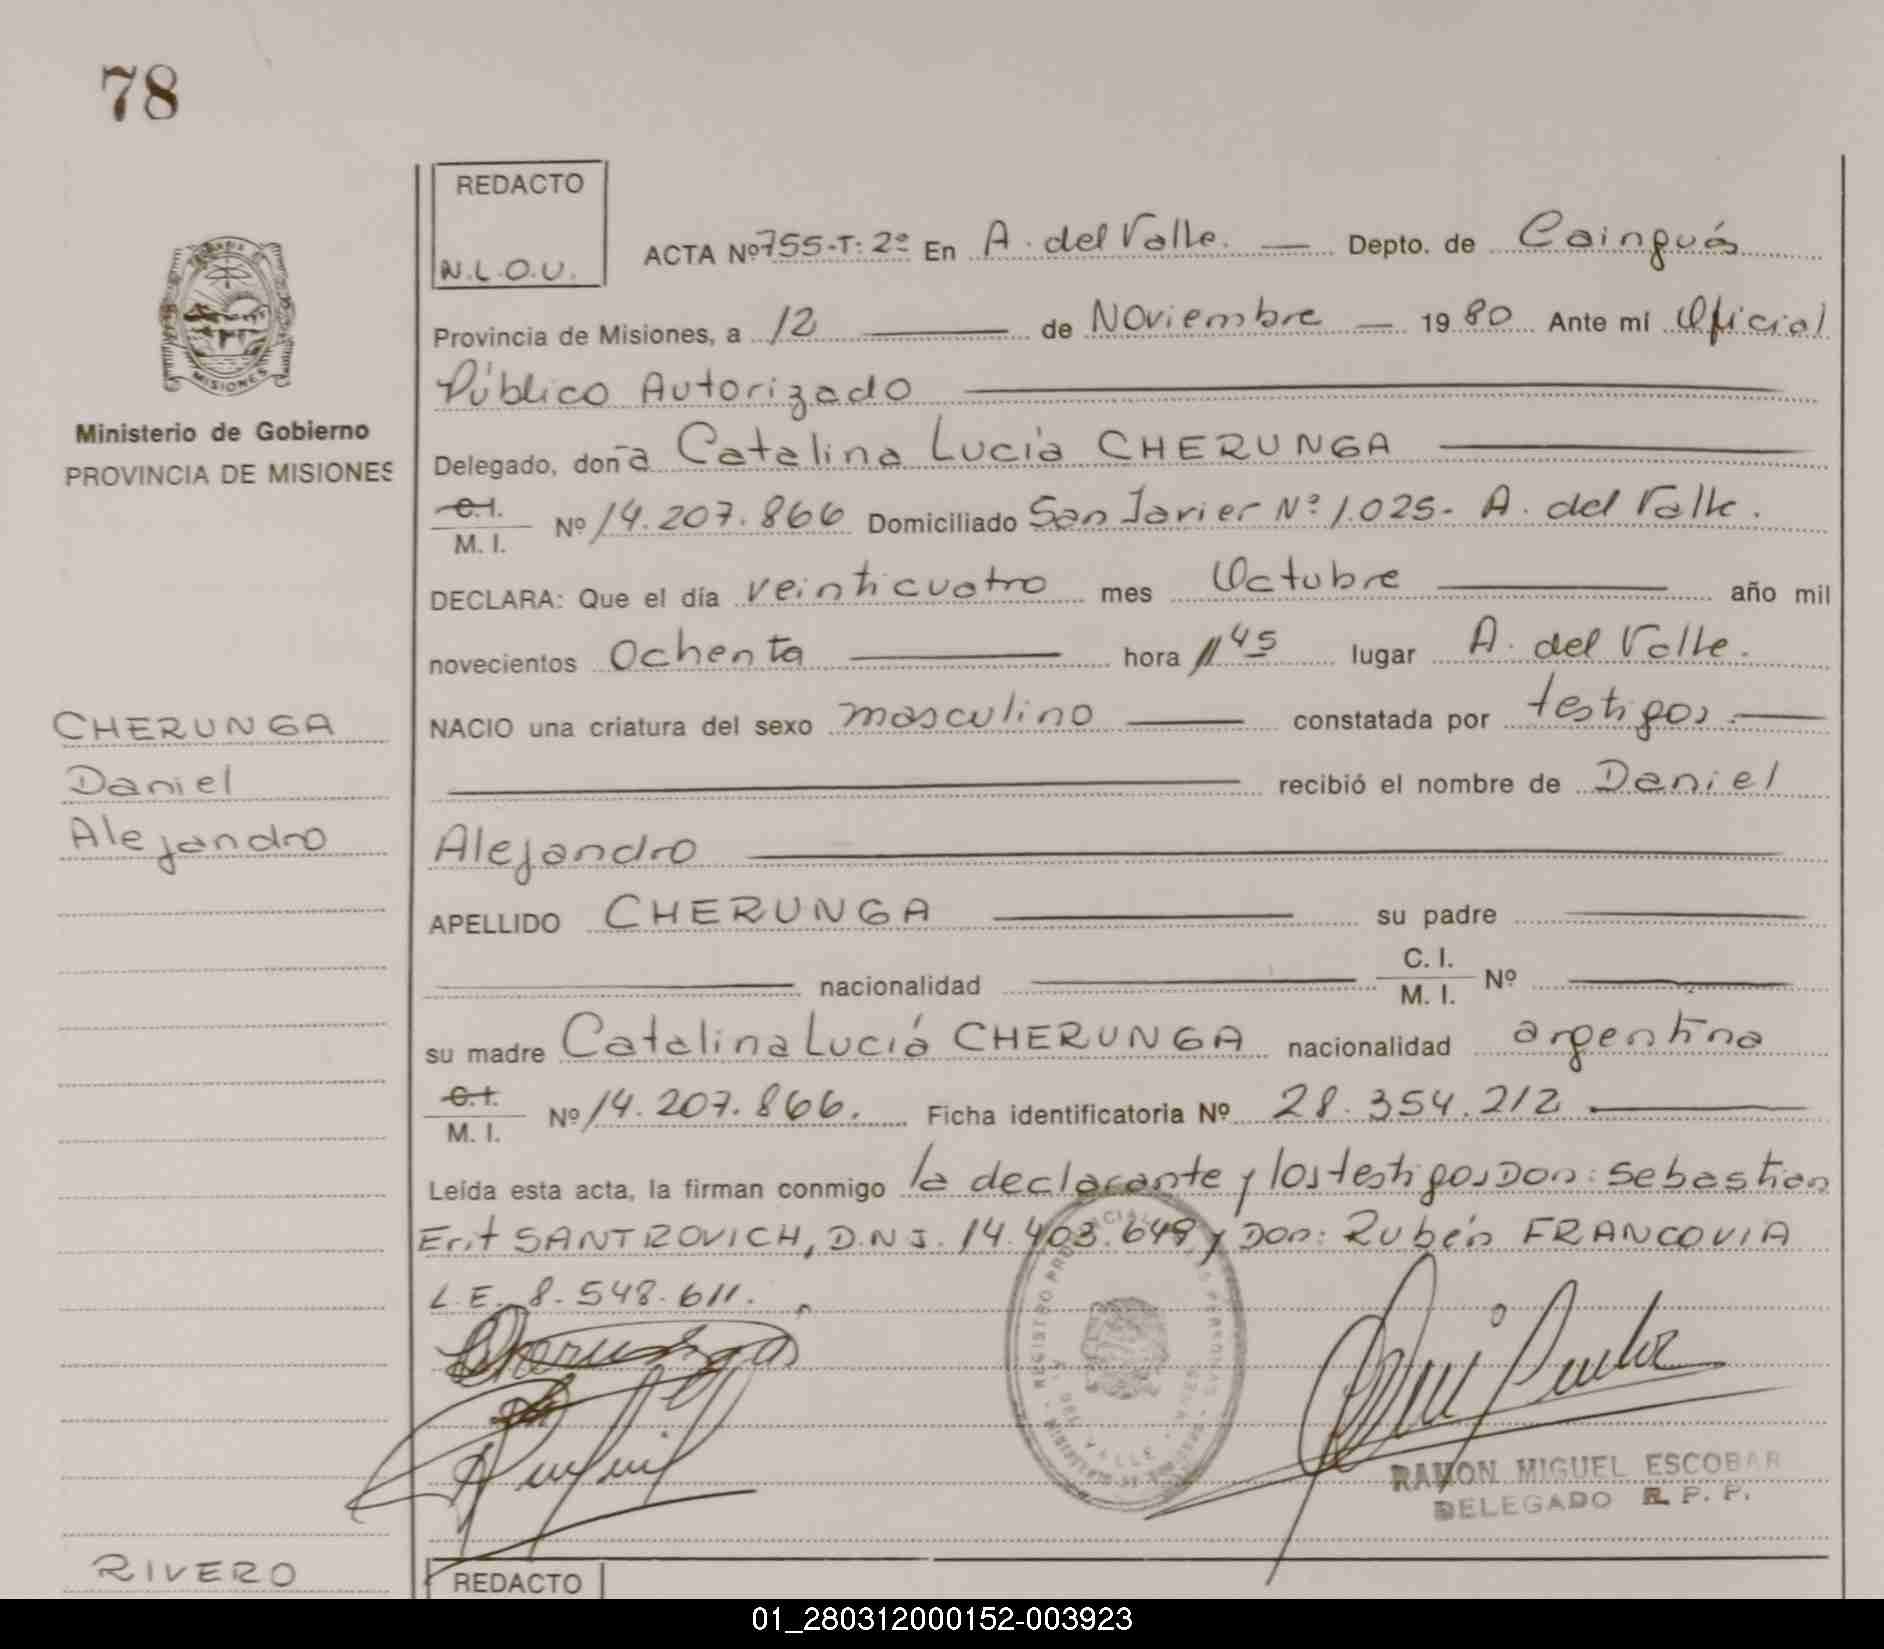 78
REDACTO
N.L.O.U.
ACTA Nº 755-T: 2º En A. del Valle. Depto. de Cainguás
MISIONES
Provincia de Misiones, a 12 de Noviembre 1980 Ante mi Oficial
Público Autorizado
Ministerio de Gobierno
PROVINCIA DE MISIONES
Delegado, doña Catalina Lucia CHERUNGA
C.I.
M. I. Nº 14.207.866 Domiciliado San Javier Nº 1.025- A. del Valle.
DECLARA: Que el día veinticuatro mes Octubre año mil
novecientos Ochenta hora 11 45 lugar A. del Valle.
CHERUNGA
NACIO una criatura del sexo masculino constatada por testigos
Daniel
recibió el nombre de Daniel
Alejandro
Alejandro
APELLIDO CHERUNGA su padre
nacionalidad C. I.
M. I. Nº
su madre Catalina Luciá CHERUNGA nacionalidad argentina
C.I.
M. I. Nº 14.207.866. Ficha identificatoria Nº 28.354.212
Leída esta acta, la firman conmigo la declarante y los testigos Don: Sebastian
Erit SANTROVICH, D.N.I. 14.403.649 y Don: Rubén FRANCOVIA
L.E. 8.548.611.
RAMON MIGUEL ESCOBAR
DELEGADO R. P. P.
RIVERO
REDACTO
01_280312000152-003923